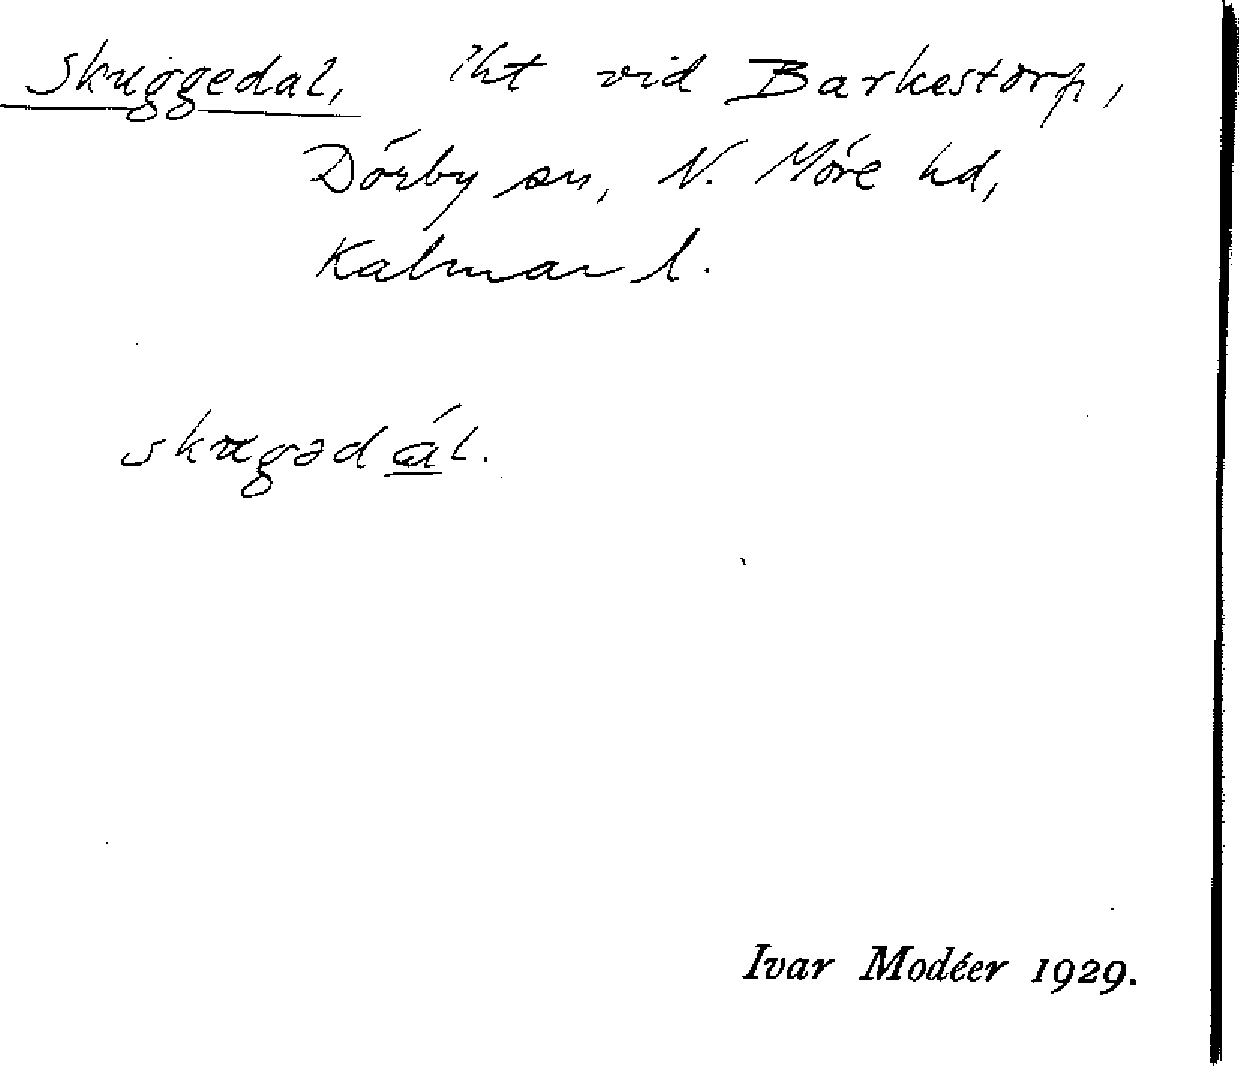 Skuggedal, lht vid Barkestorp,
Dörby sn, N. Möre hd,
Kalmar l.
skugədál.
Ivar Modéer 1929.